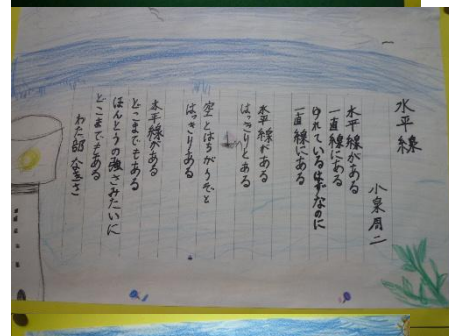 水平線
小泉周二
水平線がある
一直線にある
ゆれているはずなのに
一直線にある
水平線がある
はっきりとある
空とはちがうぞと
はっきりとある
水平線がある
どこまでもある
ほんとうの強さみたいに
どこまでもある
わた部 なぎさ